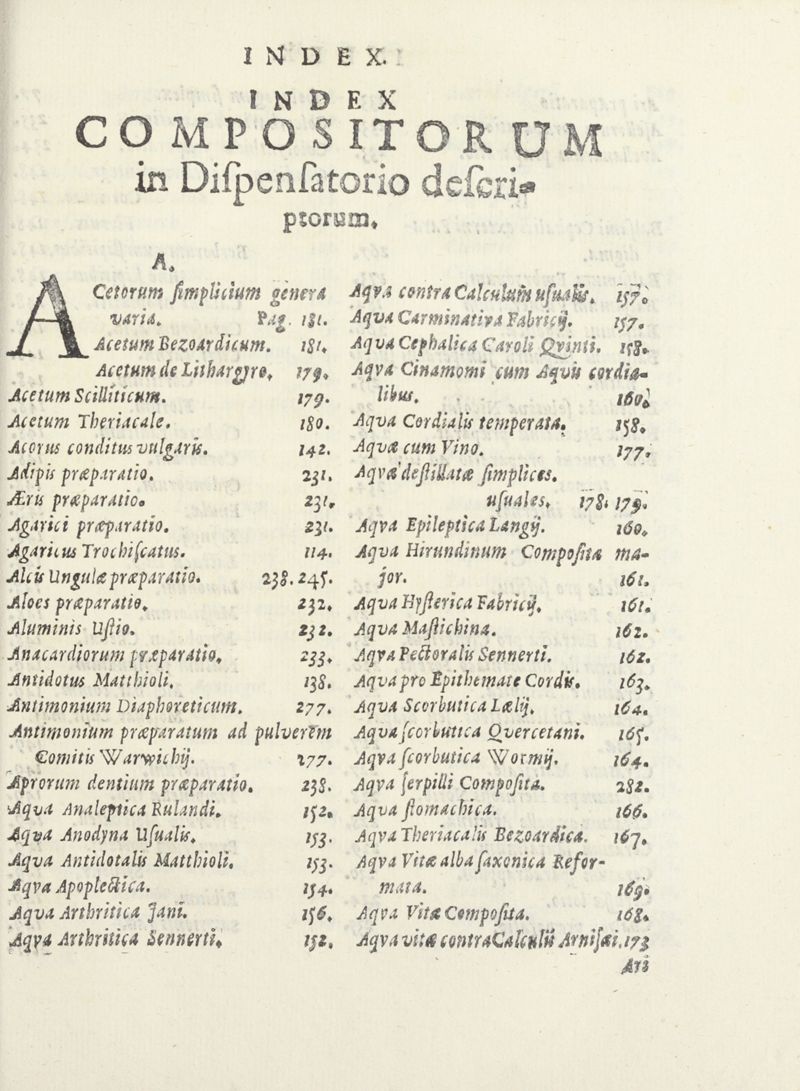 INDEX.
INDEX
COMPOSITORUM
in Diſpenſatorio deſcri-
ptorum.
A.
ACetorum ſimplicium genera
varia. Pag. 181.
Acetum Bezoardicum. 181.
Acetum de Lithargyro. 179.
Acetum Scilliticum. 179.
Acetum Theriacale. 180.
Acorus conditus vulgaris. 142.
Adipis præparatio. 231.
Æris præparatio. 231.
Agarici præparatio. 231.
Agaricus Trochiſcatus. 114.
Alcis Ungulæ præparatio. 238. 245.
Aloes præparatio. 232.
Aluminis Uſtio. 232.
Anacardiorum præparatio. 233.
Antidotus Matthioli. 138.
Antimonium Diaphoreticum. 277.
Antimonium præparatum ad pulverem
Comitis Warwichij. 277.
Aprorum dentium præparatio. 238.
Aqva Analeptica Rulandi. 152.
Aqva Anodyna Uſualis. 153.
Aqva Antidotalis Matthioli. 153.
Aqva Apoplectica. 154.
Aqva Arthritica Jani. 156.
Aqva Arthritica Sennerti. 152.
Aqva contra Calculum uſualis. 157.
Aqva Carminativa Fabricij. 157.
Aqva Cephalica Caroli Qvinti. 158.
Aqva Cinamomi cum Aqvis cordia-
libus. 160.
Aqva Cordialis temperata. 158.
Aqvæ cum Vino. 177.
Aqvæ deſtillatæ ſimplices.
uſuales. 178. 179.
Aqva Epileptica Langij. 160.
Aqva Hirundinum Compoſita ma-
jor. 161.
Aqva Hyſterica Fabricij. 161.
Aqva Maſtichina. 162.
Aqva Pectoralis Sennerti. 162.
Aqva pro Epithemate Cordis. 163.
Aqva Scorbutica Lælij. 164.
Aqva ſcorbutica Qvercetani. 165.
Aqva ſcorbutica Wormij. 164.
Aqva ſerpilli Compoſita. 282.
Aqva ſtomachica. 166.
Aqva Theriacalis Bezoardica. 167.
Aqva Vitæ alba ſaxonica Refor-
mata. 169.
Aqva Vitæ Compoſita. 168.
Aqva vitæ contra Calculū Arniſæi. 173
Ari